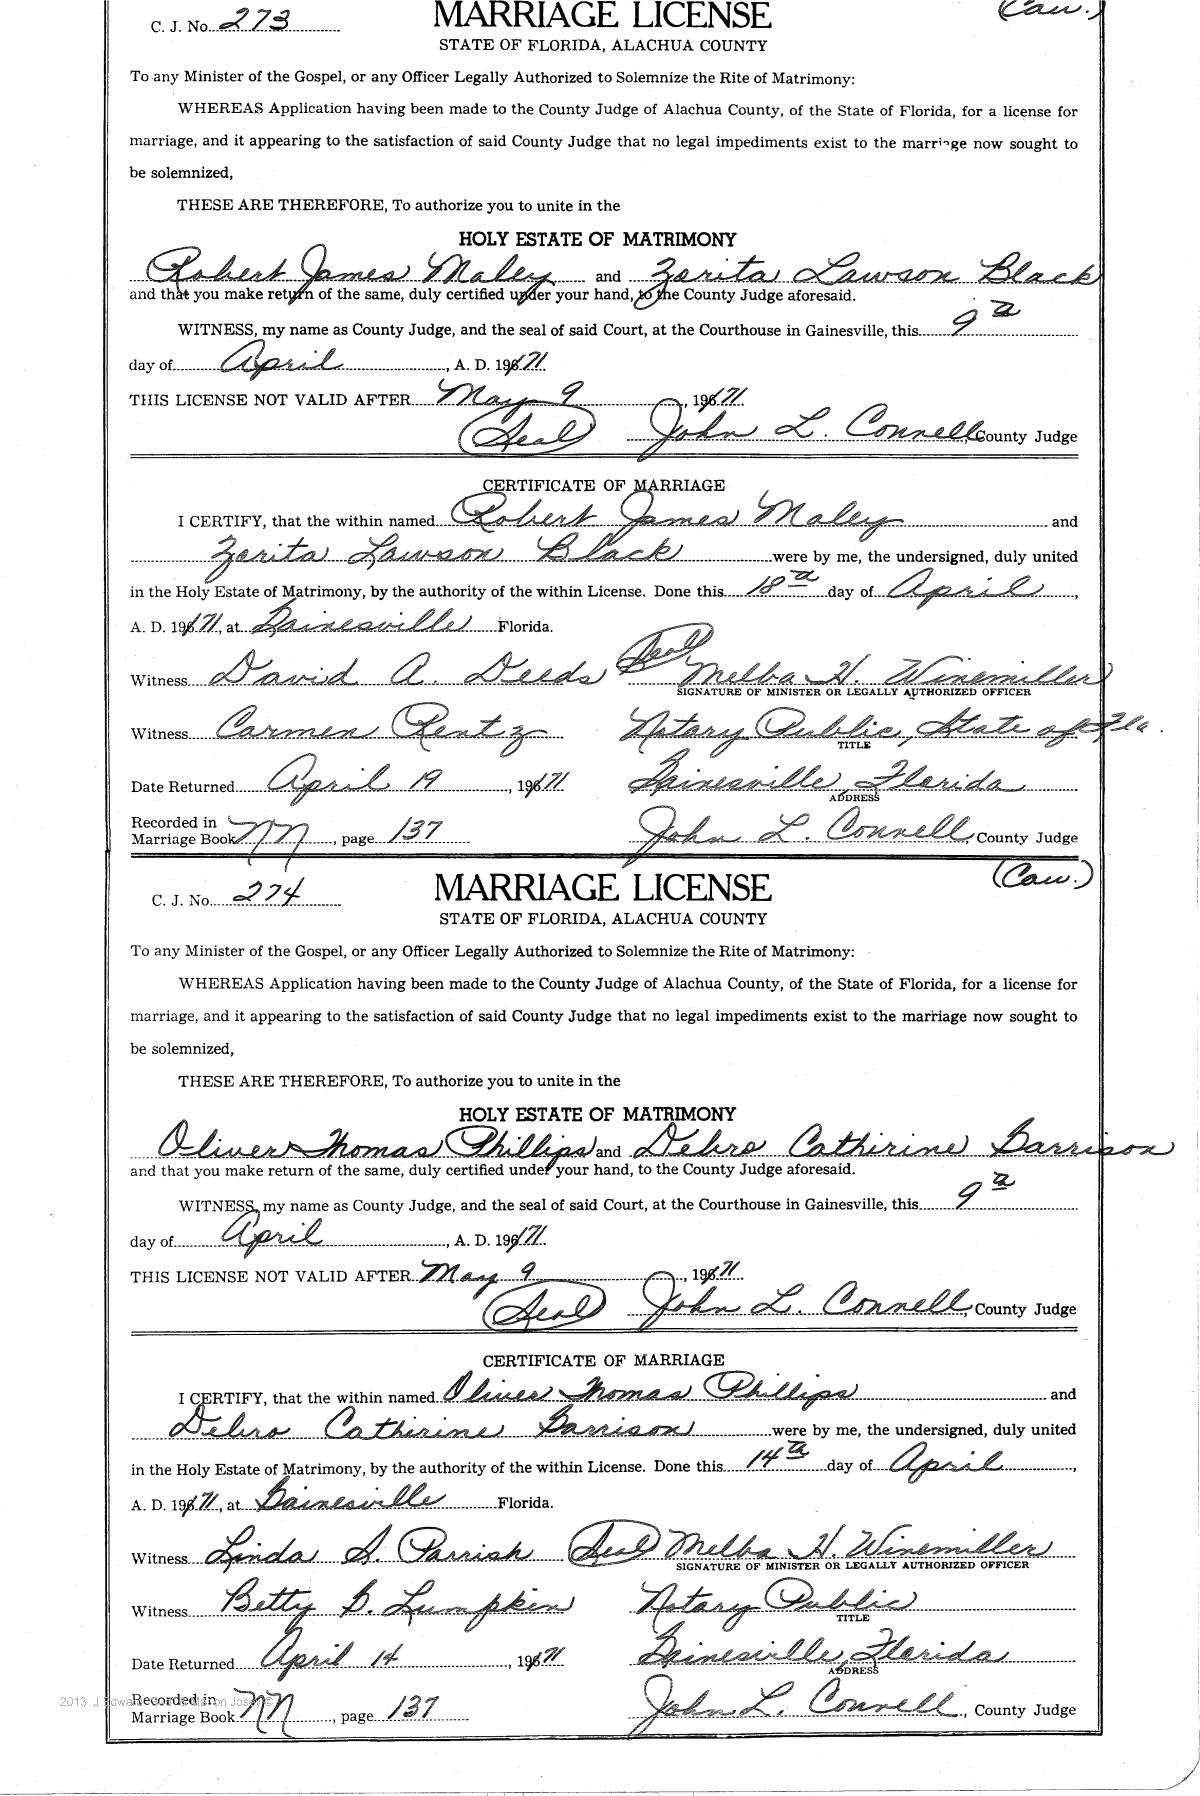 C. J. No. 273 MARRIAGE LICENSE (Cau.)
STATE OF FLORIDA, ALACHUA COUNTY
To any Minister of the Gospel, or any Officer Legally Authorized to Solemnize the Rite of Matrimony:
WHEREAS Application having been made to the County Judge of Alachua County, of the State of Florida, for a license for
marriage, and it appearing to the satisfaction of said County Judge that no legal impediments exist to the marriage now sought to
be solemnized,
THESE ARE THEREFORE, To authorize you to unite in the
HOLY ESTATE OF MATRIMONY
Robert James Maley and Zerita Lawson Black
and that you make return of the same, duly certified under your hand, to the County Judge aforesaid.
WITNESS, my name as County Judge, and the seal of said Court, at the Courthouse in Gainesville, this 9th
day of April, A. D. 1971.
THIS LICENSE NOT VALID AFTER May 9, 1971.
(Seal) John L. Connell County Judge
CERTIFICATE OF MARRIAGE
I CERTIFY, that the within named Robert James Maley and
Zerita Lawson Black were by me, the undersigned, duly united
in the Holy Estate of Matrimony, by the authority of the within License. Done this 18th day of April,
A. D. 1971, at Gainesville Florida.
Witness David A. Deeds (Seal) Melba H. Winemiller
SIGNATURE OF MINISTER OR LEGALLY AUTHORIZED OFFICER
Witness Carmen Rentz Notary Public, State of Fla.
TITLE
Date Returned April 19, 1971 Gainesville, Florida
ADDRESS
Recorded in
Marriage Book NN, page 137 John L. Connell, County Judge
C. J. No. 274 MARRIAGE LICENSE (Cau.)
STATE OF FLORIDA, ALACHUA COUNTY
To any Minister of the Gospel, or any Officer Legally Authorized to Solemnize the Rite of Matrimony:
WHEREAS Application having been made to the County Judge of Alachua County, of the State of Florida, for a license for
marriage, and it appearing to the satisfaction of said County Judge that no legal impediments exist to the marriage now sought to
be solemnized,
THESE ARE THEREFORE, To authorize you to unite in the
HOLY ESTATE OF MATRIMONY
Oliver Thomas Phillips and Debro Catherine Garrison
and that you make return of the same, duly certified under your hand, to the County Judge aforesaid.
WITNESS, my name as County Judge, and the seal of said Court, at the Courthouse in Gainesville, this 9th
day of April, A. D. 1971.
THIS LICENSE NOT VALID AFTER May 9, 1971.
(Seal) John L. Connell, County Judge
CERTIFICATE OF MARRIAGE
I CERTIFY, that the within named Oliver Thomas Phillips and
Debro Catherine Garrison were by me, the undersigned, duly united
in the Holy Estate of Matrimony, by the authority of the within License. Done this 14th day of April,
A. D. 1971, at Gainesville Florida.
Witness Linda S. Parrish (Seal) Melba H. Winemiller
SIGNATURE OF MINISTER OR LEGALLY AUTHORIZED OFFICER
Witness Betty G. Lumpkin Notary Public
TITLE
Date Returned April 14, 1971 Gainesville, Florida
ADDRESS
Recorded in
Marriage Book NN, page 137 John L. Connell, County Judge
2013